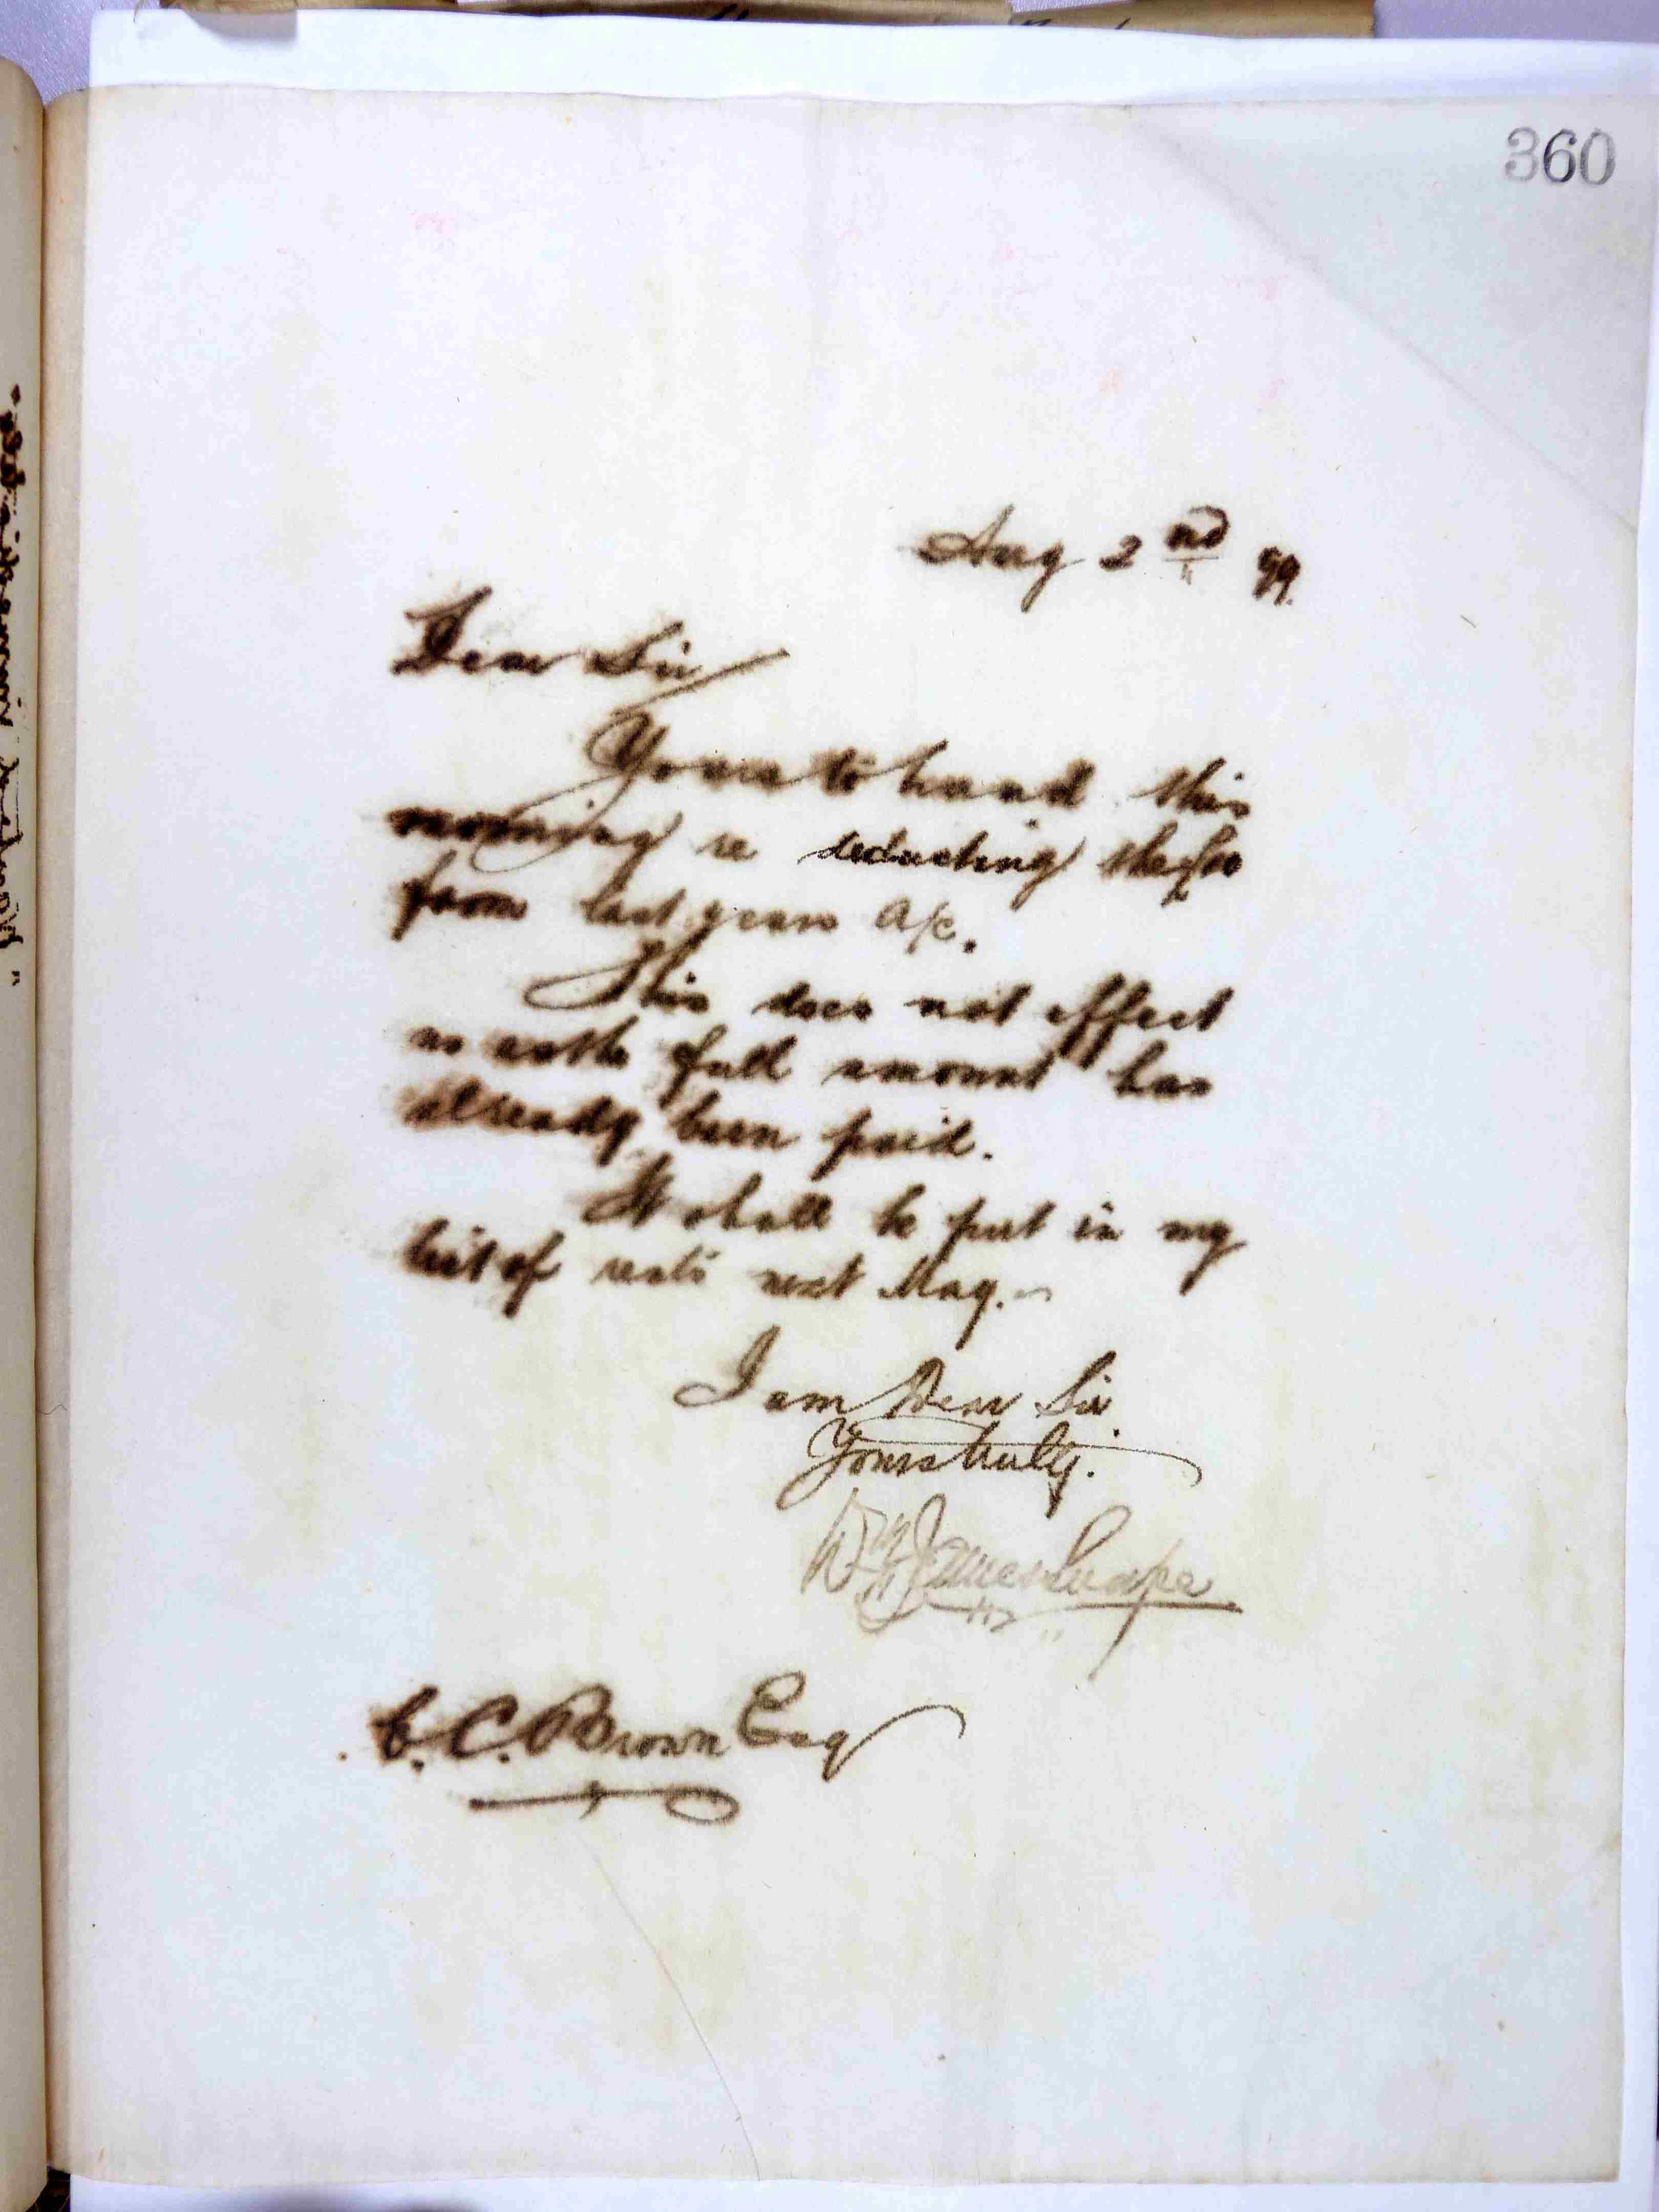 360
Aug 2nd 99.
Dear Sir
Yours to hand this
morning re deducting the
from last years a/c.
This does not effect
us as the full amount has
already been paid.
It shall be put in my
list of rents next May.
I am Dear Sir
Yours truly.
Wm James
C. C. Brown Esq